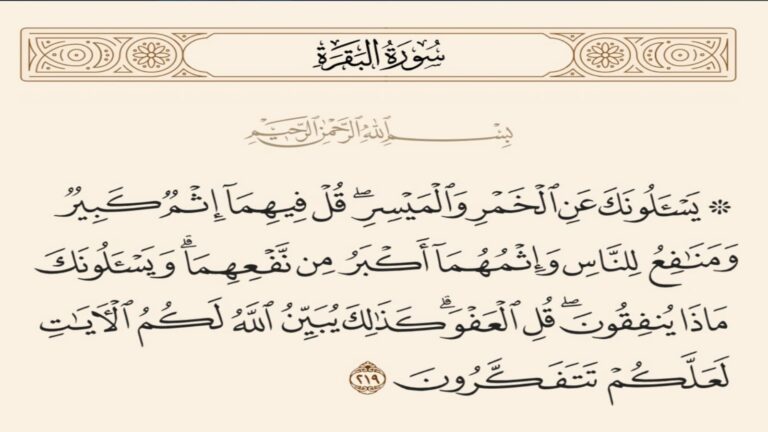 سُورَةُ البَقَرَةِ
بِسْمِ اللَّهِ الرَّحْمَٰنِ الرَّحِيمِ
۞ يَسْـَٔلُونَكَ عَنِ ٱلْخَمْرِ وَٱلْمَيْسِرِۖ قُلْ فِيهِمَآ إِثْمٌ كَبِيرٌ
وَمَنَٰفِعُ لِلنَّاسِ وَإِثْمُهُمَآ أَكْبَرُ مِن نَّفْعِهِمَاۗ وَيَسْـَٔلُونَكَ
مَاذَا يُنفِقُونَۖ قُلِ ٱلْعَفْوَۗ كَذَٰلِكَ يُبَيِّنُ ٱللَّهُ لَكُمُ ٱلْـَٔايَٰتِ
لَعَلَّكُمْ تَتَفَكَّرُونَ ٢١٩